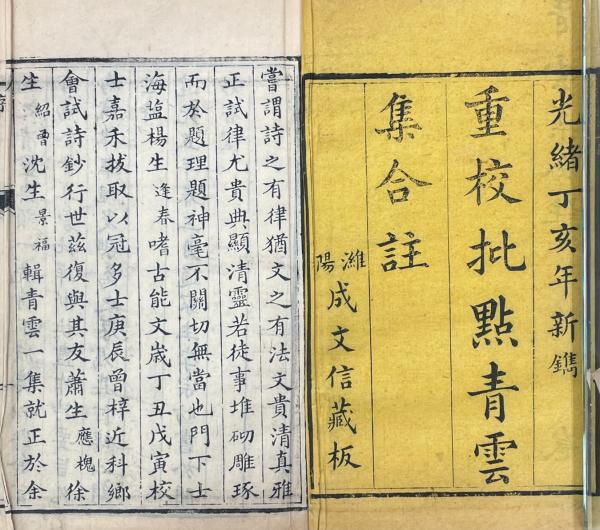 光緒丁亥年新鐫
重校批點青雲
集合註
濰陽成文信藏板
嘗謂詩之有律猶文之有法文貴清真雅
正試律尤貴典顯清靈若徒事堆砌雕琢
而於題理題神毫不關切無當也門下士
海盐楊生逢春嗜古能文嵗丁丑戊寅校
士嘉禾拔取以冠多士庚辰曾梓近科鄉
會試詩鈔行世茲復與其友蕭生應槐徐
生紹曾沈生景福輯青雲一集就正於余